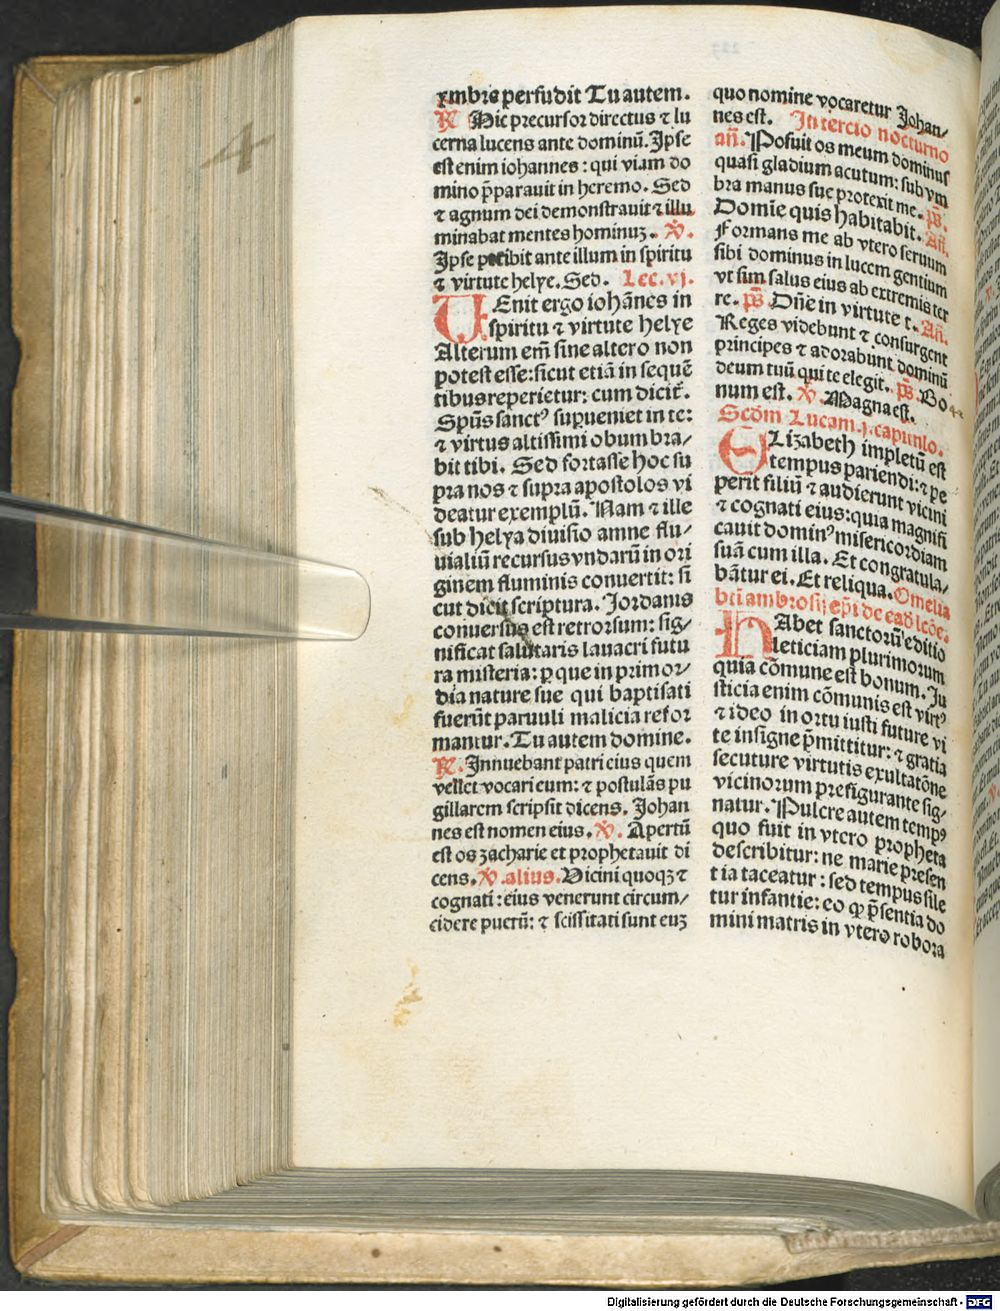 ymbre perfudit Tu autem.
R Hic precursor directus ⁊ lu
cerna lucens ante dominū. Ipse
est enim iohannes : qui viam do
mino p̄parauit in heremo. Sed
⁊ agnum dei demonstrauit ⁊ illu
minabat mentes hominuꝫ. V̇.
Ipse preibit ante illum in spiritu
⁊ virtute helye. Sed. Lec. vj.
VEnit ergo iohānes in
spiritu ⁊ virtute helye
Alterum em̄ sine altero non
potest esse: sicut etiā in sequē
tibus reperietur: cum dicit̄.
Spūs sanctꝰ supueniet in te:
⁊ virtus altissimi obumbra/
bit tibi. Sed fortasse hoc su
pra nos ⁊ supra apostolos vi
deatur exemplū. Nam ⁊ ille
sub helya diuisio amne flu/
uialiū recursus vndarū in ori
ginem fluminis conuertit: si
cut dicit scriptura. Jordanis
conuersus est retrorsum: sig/
nificat salutaris lauacri futu
ra misteria: ꝑ que in primor/
dia nature sue qui baptisati
fuerūt paruuli malicia refor
mantur. Tu autem domine.
R. Innuebant patri eius quem
vellet vocari eum: ⁊ postulās pu
gillarem scripsit dicens. Johan
nes est nomen eius. V̇. Apertū
est os zacharie et prophetauit di
cens. V̇. alius. Vicini quoqꝫ ⁊
cognati : eius venerunt circum/
cidere puerū: ⁊ scissitati sunt euꝫ
quo nomine vocaretur Johan/
nes est. In tercio nocturno
añ. Posuit os meum dominus
quasi gladium acutum: sub vm
bra manus sue protexit me. ps̄.
Domīe quis habitabit. Añ.
Formans me ab vtero seruum
sibi dominus in lucem gentium
vt sim salus eius ab extremis ter
re. ps̄ Dn̄e in virtute t. Añ.
Reges videbunt ⁊ consurgent
principes ⁊ adorabunt dominū
deum tuū qui te elegit. ps̄. Bo
num est. V̇. Magna est.
Scdm̄ Lucam .j. capitulo.
ELizabeth impletū est
tempus pariendi: ⁊ pe
perit filiū ⁊ audierunt vicini
⁊ cognati eius: quia magnifi
cauit dominꝰ misericordiam
suā cum illa. Et congratula/
bātur ei. Et reliqua. Omelia
bt̄i ambrosij ep̄i de eadē lcōe.
HAbet sanctorū editio
leticiam plurimorum
quia cōmune est bonum. Ju
sticia enim cōmunis est virtꝰ
⁊ ideo in ortu iusti future vi
te insigne p̄mittitur: ⁊ gratia
secuture virtutis exultatōne
vicinorum prefigurante sig/
natur. Pulcre autem tempꝰ
quo fuit in vtero propheta
describitur: ne marie presen
tia taceatur : sed tempus sile
tur infantie: eo ꝙ p̄sentia do
mini matris in vtero robora
Digitalisierung gefördert durch die Deutsche Forschungsgemeinschaft - DFG